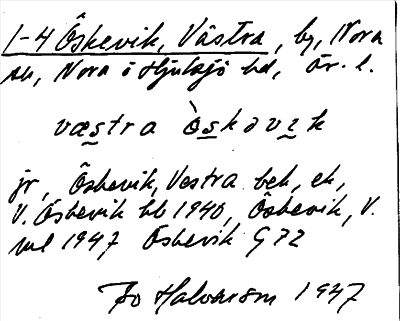 1-4 Öskevik, Västra, by, Nora
sn, Nora o Hjulsjö hd, Ör. l.
væstra òskəvik
jr, Öskevik, Vestra bek, ek,
V. Öskevik hb 1940, Öskevik, V.
1947 Öskevik G 72
Bo Halvarson 1947